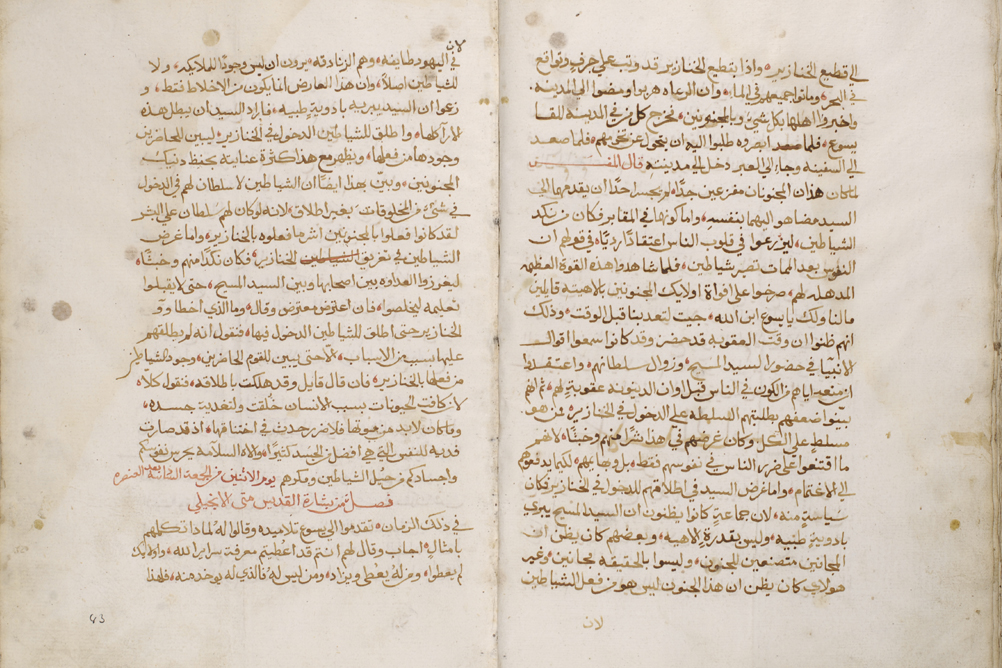 الى قطيع الخنازير واذا بقطيع الخنازير قد وثب على جرف وتواقع
في البحر وماتوا جميعهم في الماء وان الرعاه هربوا ومضوا الى المدينه
واخبروا اهلها بكل شيء وبالمجنونين فخرج كل من في المدينه للقا
يسوع فلما ابصروه طلبوا اليه ان يتحول عن تخومهم فلما صعد
الى السفينه وجاء الى العبر دخل الى مدينته قال المفسر
لما كان هذان المجنونان مفزعين جدا لم يجسر احدا ان يقدمهما الى
السيد مضا هو اليهما بنفسه واما كونهما في المقابر فكان من نكد
الشياطين ليزرعوا في قلوب الناس اعتقادا رديا في قولهم ان
النفوس بعد الممات تصير شياطين فلما شاهدوا هذه القوة العظيمه
المدهله لهم صرخوا على افواة اولايك المجنونين بلاهيته قايلين
ما لنا ولك يا يسوع ابن الله جيت لتعدبنا قبل الوقت وذلك
انهم ظنوا ان وقت العقوبه قد حضر وقد كانوا سمعوا اقوال
الانبيا في حضور السيد المسيح وزوال سلطانهم واعتقدوا
ان منعه اياهم من الكون في الناس قبل اوان الدينونه عقوبة لهم ثم انهم
بينوا ضعفهم بطلبتهم السلطه على الدخول في الخنازير من هو
مسلط على الكل وكان غرضهم في هذا شرا منهم وخبثا لانهم
ما اقتنعوا على ضرر الناس في نفوسهم فقط بل وبها يهم لكيما يدفعوهم
الى الاغتمام واما غرض السيد في اطلاقهم للدخول في الخنازير فكان
سياسة منه لان جماعة كانوا يظنون ان السيد المسيح يبرى
بادوية طبيه وليس بقدرة الاهيه وبعضهم كان يظن ان
المجانين متصنعين للجنون وليسوا بالحقيقه مجانين وغير
هولاي كان يظن ان هذا الجنون ليس هو من فعل الشياطين
لان
لان
في اليهود طايفه وهم الزنادقه يرون ان ليس وجودا للملايكه ولا
للشياطين اصلا وان هذا العارض انما يكون من الاخلاط فقط و
زعموا ان السيد يبريه بادوية طبيه فاراد السيد ان يبطل هذه
الارا كلها واطلق للشياطين الدخول في الخنازير ليبين للحاضرين
وجودها من فعلها ويظهر مع هذا كثرة عنايته بحفظ دنيك
المجنونين وبين بهذا ايضا ان الشياطين لا سلطان لهم في الدخول
في شيء من المخلوقات بغير اطلاق لانه لو كان لهم سلطان على البشر
لقد كانوا فعلوا بالمجنونين اشر ما فعلوه بالخنازير واما غرض
الشياطين في تغريق الخنازير فكان نكدا منهم وخبثا
ليغرزوا العداوه بين اصحابها وبين السيد المسيح حتى لا يقبلوا
تعليمه ليخلصوا فان اعترض معترض وقال وما الذي اخطا وو
الخنازير حتى اطلق للشياطين الدخول فيها فنقول انه لم يطلقهم
عليها لسبب من الاسباب الا حتى يبين للقوم الحاضرين وجود الشياطين
من فعلها بالخنازير فان قال قايل وقد هلكت باطلاقه فنقول كلا
لان كافة الحيونات بسبب الانسان خلقت ولتغدية جسده
وما كان لا بد من موتها فلا ضرر حدث في اختناقها اذ قد صارت
فدية للنفس التي هي افضل من الجسد كثيرا والاه السلامه يحرس نفوسكم
واجسادكم من حيل الشياطين ومكرهم يوم الاثنين من الجمعة الثانية بعد العنصره
فصل من بشارة القديس متى الانجيلي
في ذلك الزمان تقدموا الى يسوع تلاميده وقالوا له لماذا تكلمهم
بامثال اجاب وقال لهم انتم قد اعطيتم معرفة سراير الله واولايك
لم يعطوا ومن له يعطى ويزاد ومن ليس له فالذي له يوخد منه فلهذا